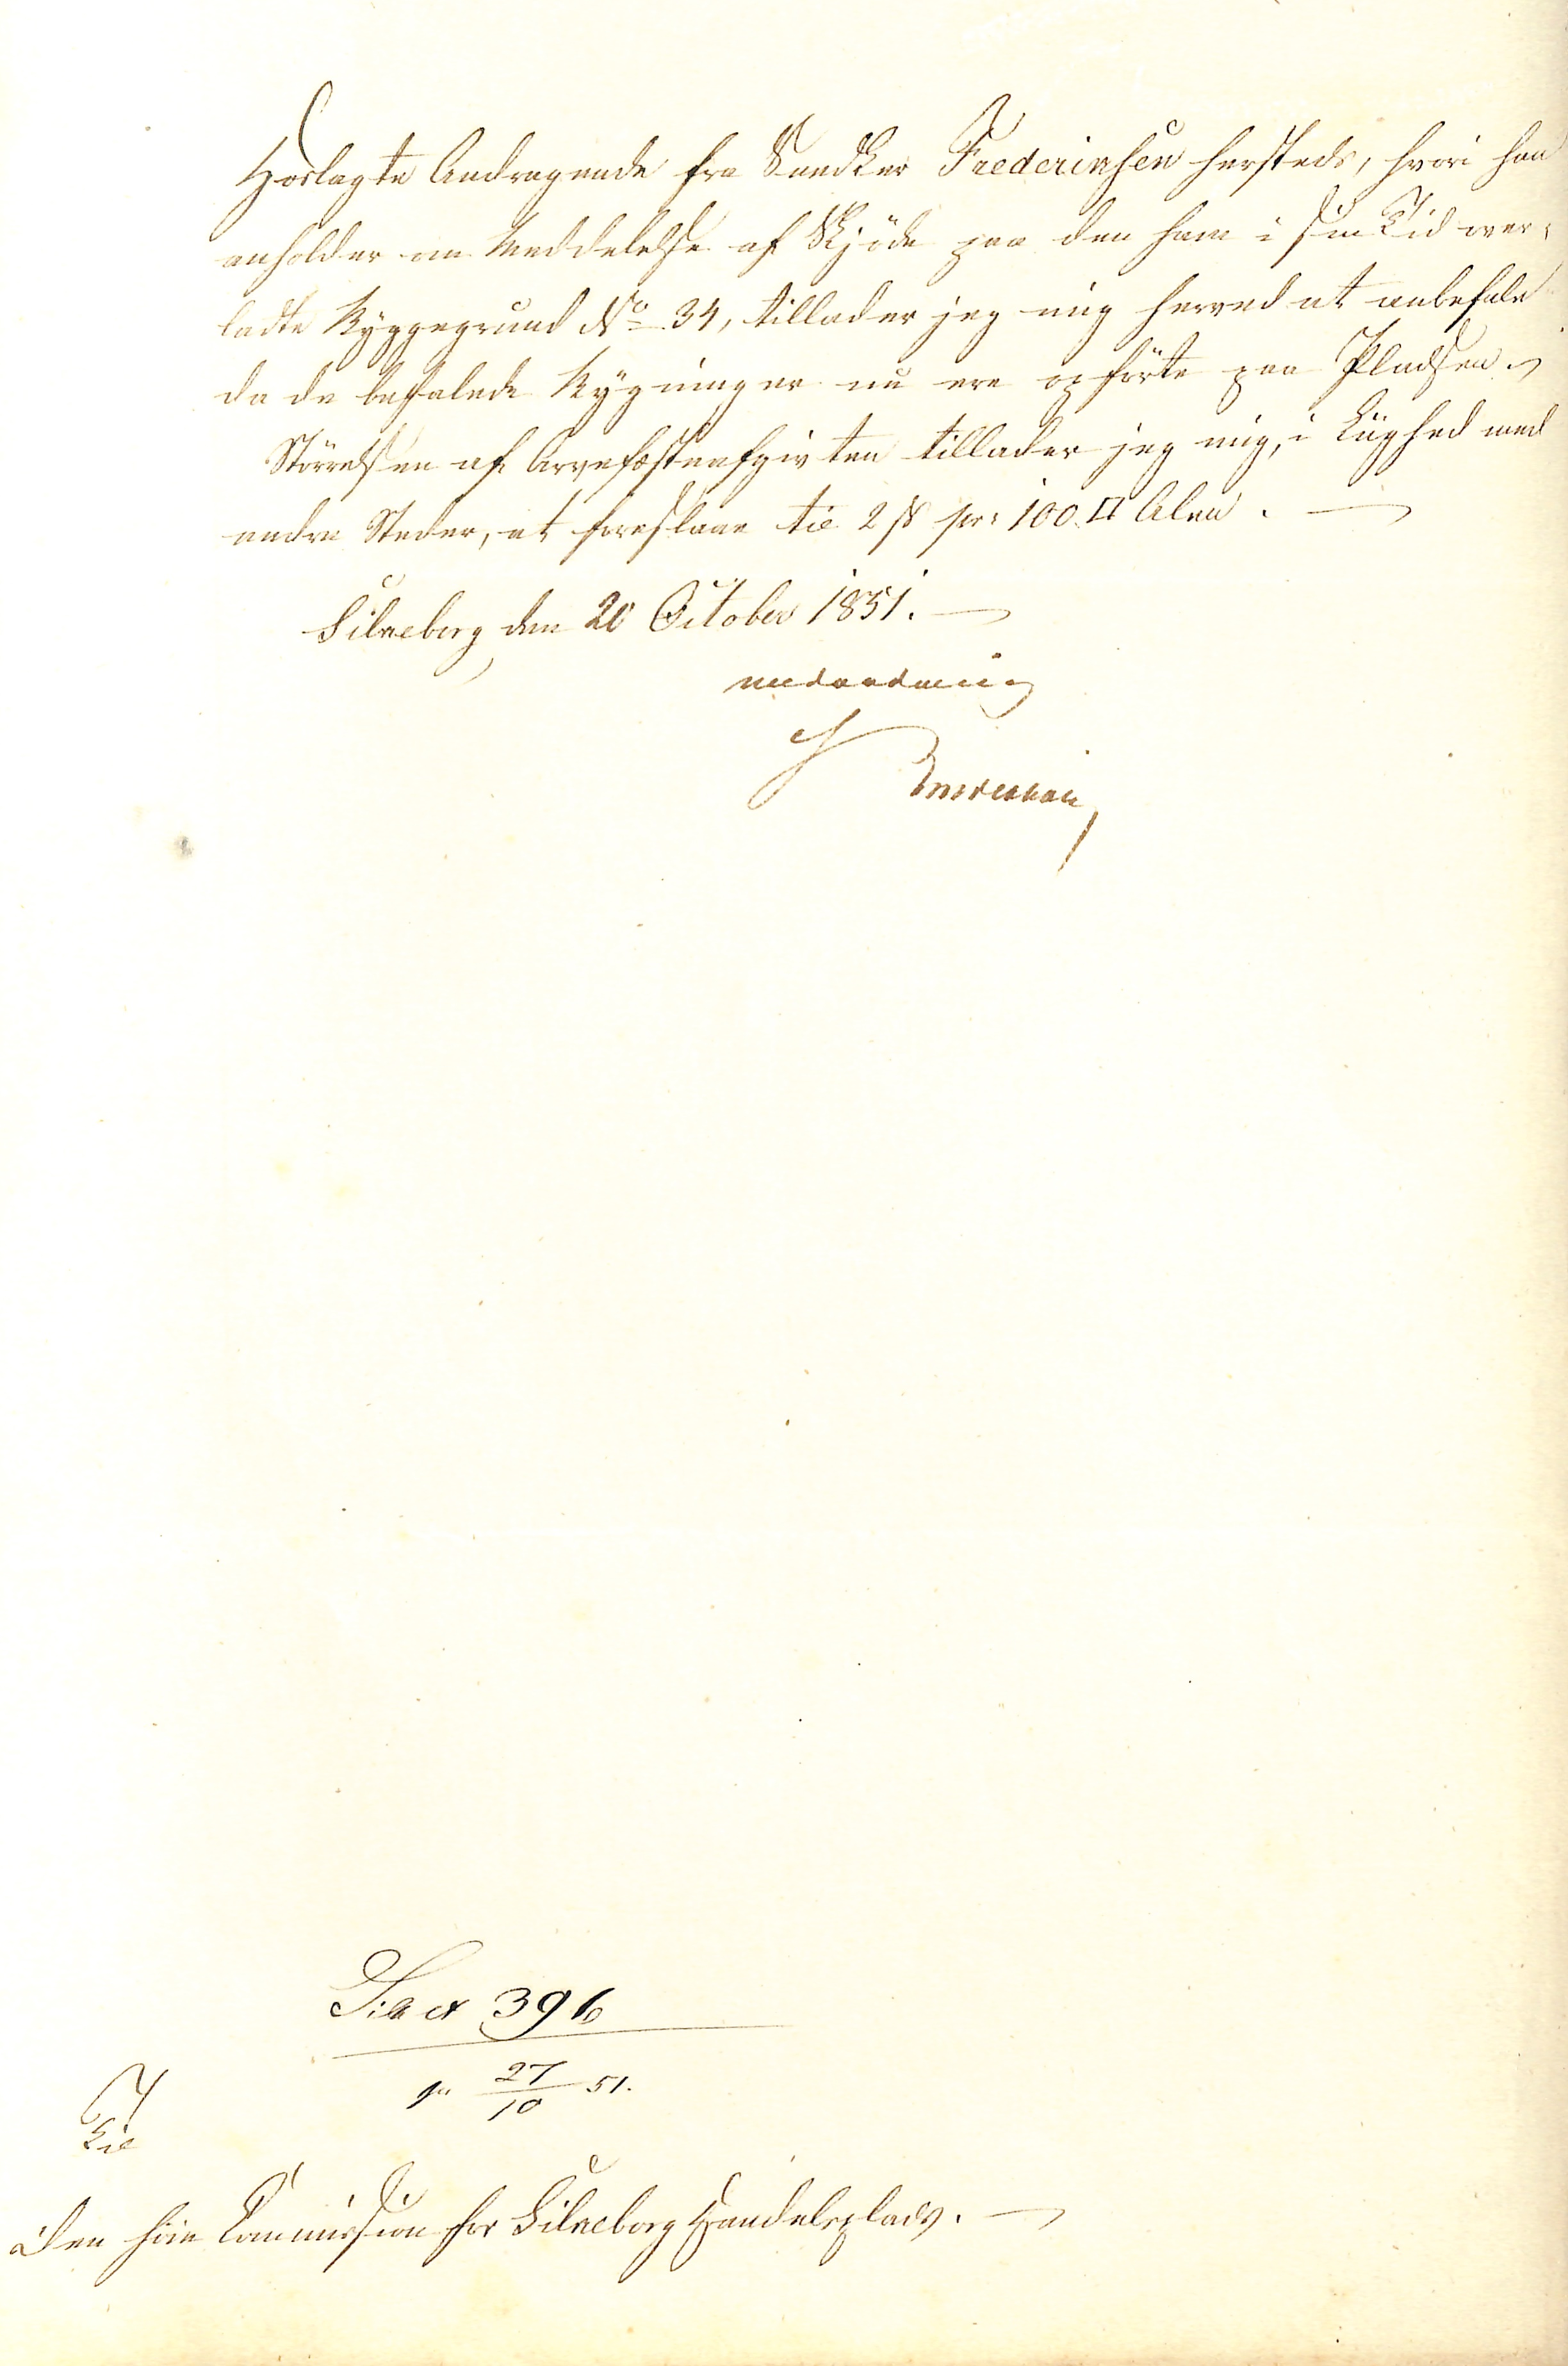 Hoslagte Andragende fra Snedker Frederiksen hersteds, hvori han
anholder om Meddelelse af Skjöde paa den ham i sin Tid over-
ladte Byggegrund No 34, tillader jeg mig herved at anbefale
da de befalede Bygninger nu ere opförte paa Pladsen.
Störrelsen af Arvefæsteafgivten tillader jeg mig, i Liighed med
andre Steder, at foreslaae til 2 ß pr: 100 □ Alen.
Silkeborg den 20 October 1851.
underdanig
Til
Den höie Commission for Silkeborg Handelsplads.
396
27/10 51.